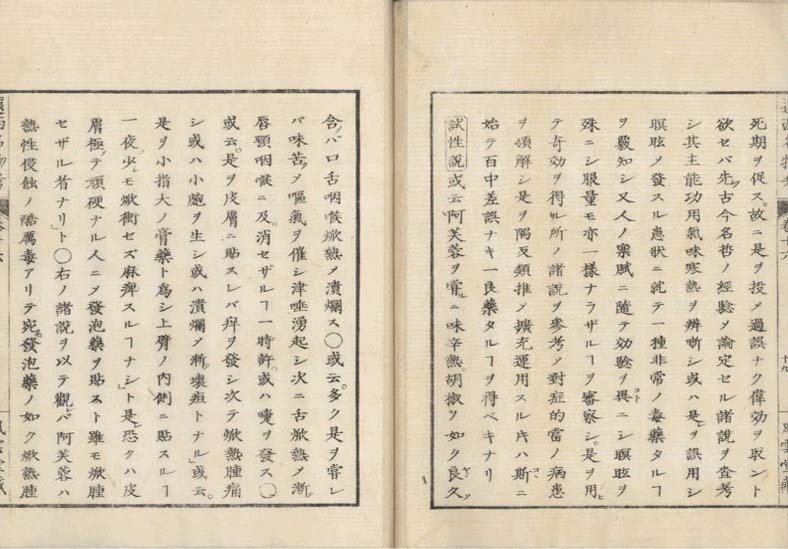 死期ヲ促ス。故ニ是ヲ投メ過誤ナク偉効ヲ取ント
欲セバ先ヅ古今名哲ノ經驗メ論定セル諸説ヲ査考
シ其主能功用氣味寒熱ヲ辨晰シ或ハ是ヲ誤用シ
瞑眩メ發スル患狀ニ就テ一種非常ノ毒藥タルヿ
ヲ覈知シ又人ノ禀賦ニ隨テ効驗ヲ異ニシ瞑眩ヲ
殊ニシ服量モ亦一樣ナラザルヿヲ審察シ。是ヲ用ヒ
テ奇効ヲ得ル所ノ諸説ヲ參考メ對症的當ノ病患
ヲ領解シ是ヲ隅反類推メ擴充運用スル𪜈ハ斯ニ
始テ百中差誤ナキ一良藥タルヿヲ得ベキナリ
試性説 或云阿芙蓉ヲ嘗ルニ味辛熱胡椒ノ如ク良久
含メバ口舌咽喉焮熱メ潰爛ス〇或云。多ク是ヲ嘗レ
バ味苦メ嘔氣ヲ催シ津唾湧起シ次ニ舌焮熱メ漸ク
唇顎咽喉ニ及ビ消セザルヿ一時許或ハ嚏ヲ發ス〇
或云。是ヲ皮膚ニ貼スレバ痒ヲ發シ次テ焮熱腫痛
シ或ハ小皰ヲ生シ或ハ潰爛メ漸ク壞疽トナル」或云。
是ヲ小指大ノ膏藥ト爲シ上臂ノ内側ニ貼スルヿ
一夜。少シモ焮衝セズ麻痺スルヿナシ」ト是レ恐クハ皮
膚極メテ頑硬ナル人ニメ發泡藥ヲ貼スト雖モ焮腫
セザル者ナリ」ト〇右ノ諸説ヲ以テ觀レバ阿芙蓉ハ
熱性侵蝕ノ酷厲毒アリテ宛モ發泡藥ノ如ク焮熱腫